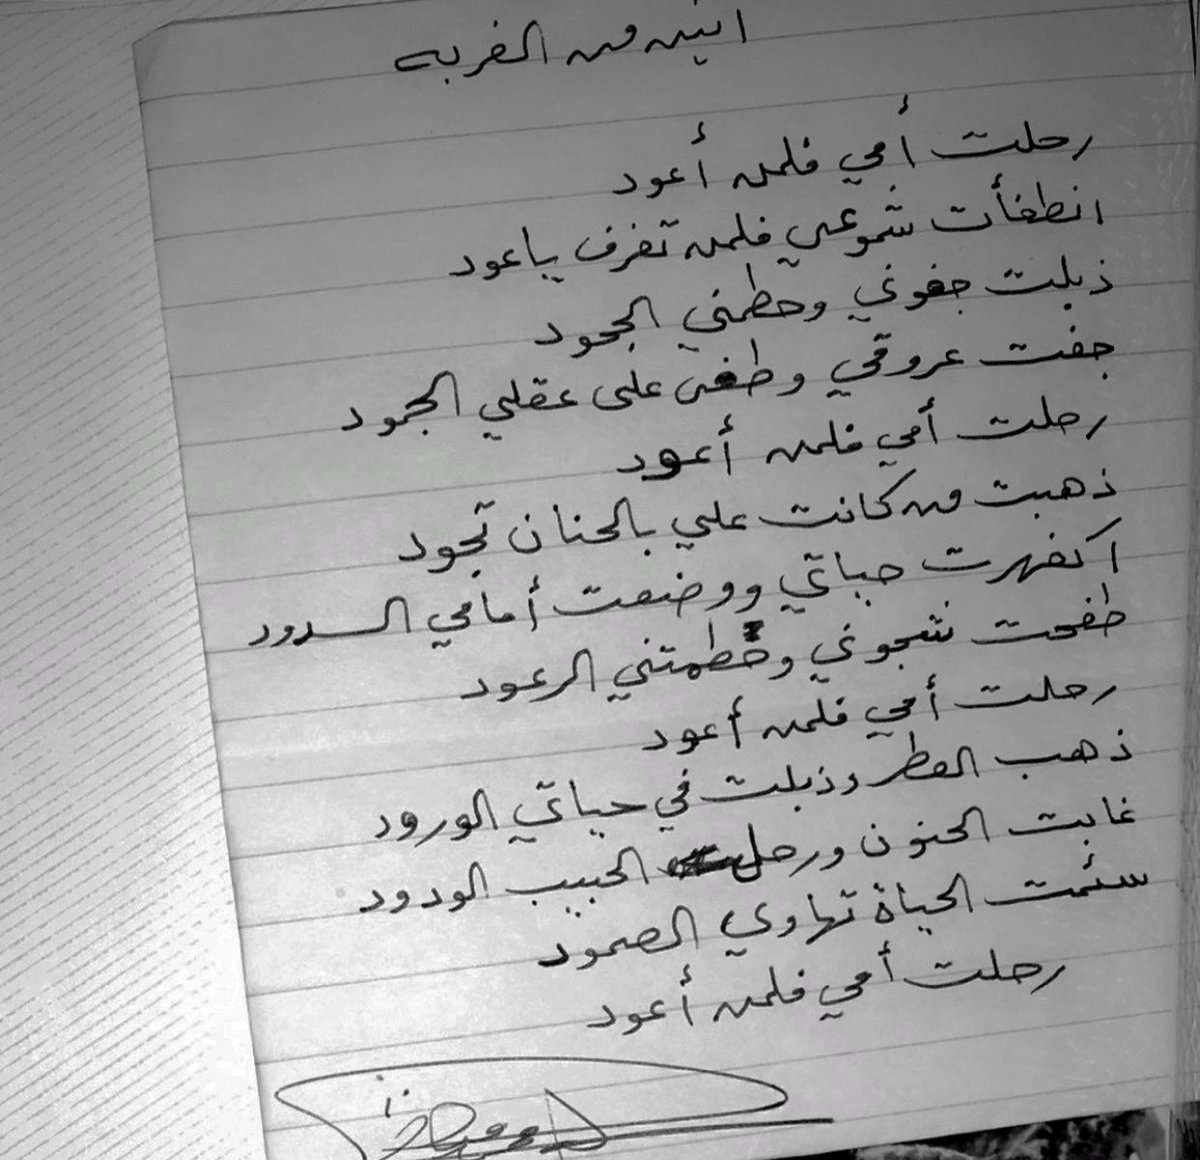 انين من الغربه
رحلت أمي فلمن أعود
انطفأت شموعي فلمن تعزف ياعود
ذبلت جفوني وحطمني الجحود
جفت عروقي وطغى على عقلي الجمود
رحلت أمي فلمن أعود
ذهبت من كانت علي بالحنان تجود
اكفهرت حياتي ووضعت أمامي السدود
طفحت شجوني وحطمتني الرعود
رحلت أمي فلمن أعود
ذهب العطر وذبلت في حياتي الورود
غابت الحنون ورحل الحبيب الودود
سئمت الحياة تهاوي الصمود
رحلت أمي فلمن أعود